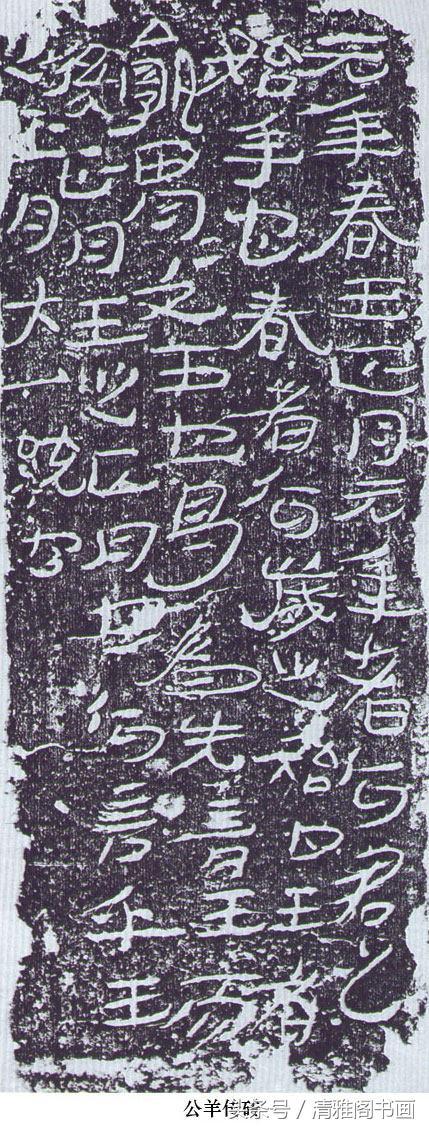 元年春王正月元年者何君之
始年也春者何歲之始也王者
孰胃=文王也曷為先言王而
後正月王之正月也何言乎王
之正月大一統也
公羊传砖
头条号 / 清雅阁书画